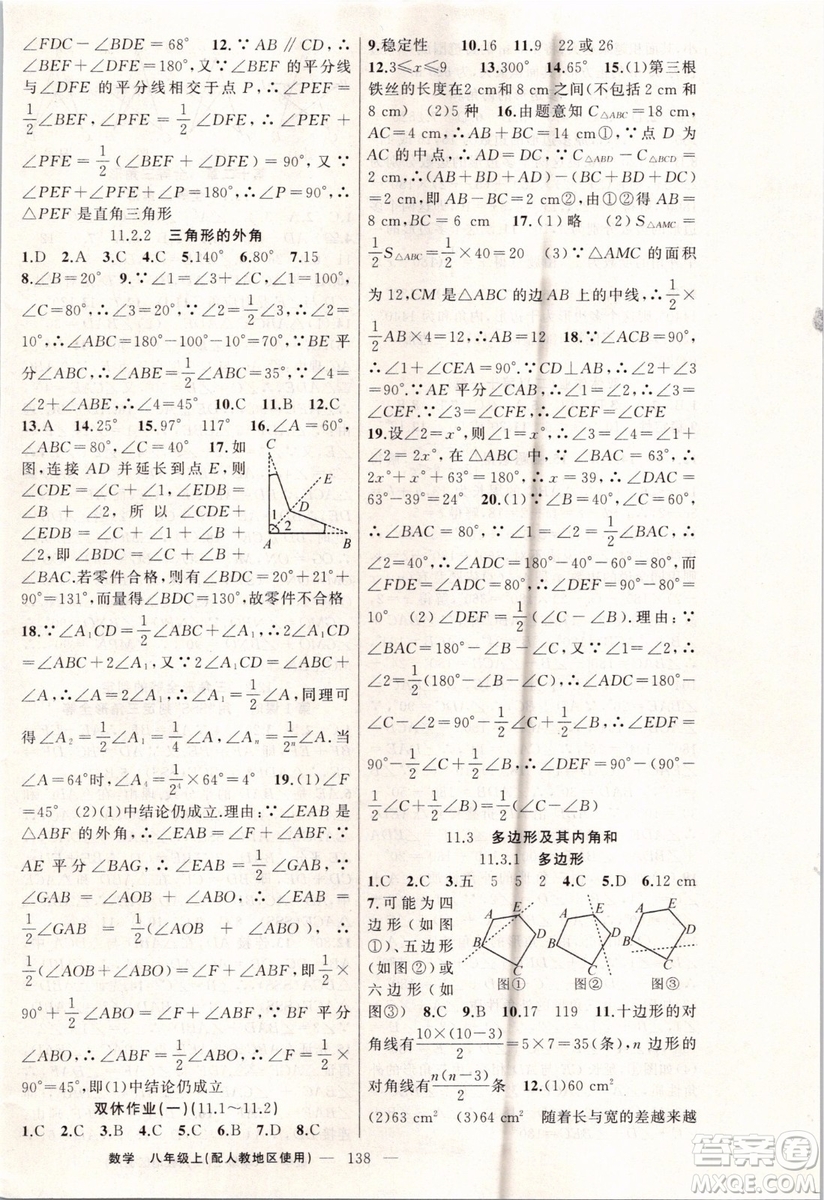 ∠FDC－∠BDE＝68°　12.∵AB∥CD,∴
∠BEF＋∠DFE＝180°,又∵∠BEF的平分线
与∠DFE的平分线相交于点P,∴∠PEF＝
1/2∠BEF,∠PFE＝1/2∠DFE,∴∠PEF＋
∠PFE＝1/2(∠BEF＋∠DFE)＝90°,又∵
∠PEF＋∠PFE＋∠P＝180°,∴∠P＝90°,∴
△PEF是直角三角形
11.2.2　三角形的外角
1.D　2.A　3.C　4.C　5.140°　6.80°　7.15
8.∠B＝20°　9.∵∠1＝∠3＋∠C,∠1＝100°,
∠C＝80°,∴∠3＝20°,∵∠2＝1/2∠3,∴∠2＝
10°,∴∠ABC＝180°－100°－10°＝70°,∵BE平
分∠ABC,∴∠ABE＝1/2∠ABC＝35°,∵∠4＝
∠2＋∠ABE,∴∠4＝45°　10.C　11.B　12.C
13.A　14.25°　15.97°　117°　16.∠A＝60°,
∠ABC＝80°,∠C＝40°　17.如
图,连接AD并延长到点E,则
∠CDE＝∠C＋∠1,∠EDB＝
∠2＋∠B,所以∠CDE＋
∠EDB＝∠C＋∠1＋∠2＋
∠B,即∠BDC＝∠C＋∠B＋
∠BAC.若零件合格,则有∠BDC＝20°＋21°＋
90°＝131°,而量得∠BDC＝130°,故零件不合格
C
E
D
1
2
A
B
18.∵∠A₁CD＝1/2∠ACD,∴2∠A₁CD＝
∠ABC＋∠A＝2∠A₁BC＋∠A,又∵2∠A₁CD＝
∠ABC＋2∠A₁,∴∠ABC＋2∠A₁＝∠ABC＋
∠A,∴∠A＝2∠A₁,∴∠A₁＝1/2∠A,同理可
得∠A₂＝1/2∠A₁＝1/4∠A,∠Aₙ＝1/2ⁿ∠A,当
∠A＝64°时,∠A₄＝1/2⁴×64°＝4°　19.(1)∠F
＝45°　(2)(1)中结论仍成立.理由:∵∠EAB是
△ABF的外角,∴∠EAB＝∠F＋1/2∠ABF.∵
AE平分∠BAG,∴∠EAB＝1/2∠GAB,∵
∠GAB＝∠AOB＋∠ABO,∴∠EAB＝
1/2∠GAB＝1/2(∠AOB＋∠ABO),∴
1/2(∠AOB＋∠ABO)＝∠F＋∠ABF,∴1/2×
90°＋1/2∠ABO＝∠F＋∠ABF,∵BF平分
∠ABO,∴∠ABF＝1/2∠ABO,∴∠F＝1/2×
90°＝45°,即(1)中结论仍成立
双休作业(一)(11.1～11.2)
1.C　2.C　3.C　4.C　5.C　6.B　7.D　8.C
9.稳定性　10.16　11.9　22或26
12.3≤x≤9　13.300°　14.65°　15.(1)第三根
铁丝的长度在2 cm和8 cm之间(不包括2 cm和
8 cm)　(2)5种　16.由题意知C△ABC＝18 cm,
AC＝4 cm,∴AB＋BC＝14 cm①,∵点D为
AC的中点,∴AD＝CD,∵C△ABD－C△BCD＝
2 cm,∴(AB＋AD＋BD)－(BC＋BD＋DC)
＝2 cm,即AB－BC＝2 cm②,由①②得AB＝
8 cm,BC＝6 cm　17.(1)略　(2)S△AMC＝
1/2S△ABC＝1/2×40＝20　(3)∵△AMC的面积
为12,CM是△ABC的边AB上的中线,∴1/2×
1/2AB×4＝12,∴AB＝12　18.∵∠ACB＝90°,
∴∠1＋∠CEA＝90°.∵CD⊥AB,∴∠2＋∠3＝
90°.∵AE平分∠CAB,∴∠1＝∠2,∴∠3＝
∠CEF.∵∠3＝∠CFE,∴∠CEF＝∠CFE
19.设∠2＝x°,则∠1＝∠2＝x°,∴∠4＝∠1＋
∠2＝2x°,∴∠3＝2x°,在△ABC中,∠2＋∠4＝
2x°＋x°＋63°＝180°,∴x＝39,∴∠DAC＝
63°－39°＝24°　20.(1)∵∠C＝60°,∠B＝40°,
∴∠BAC＝80°,∵∠1＝∠2＝1/2∠BAC,∴
∠2＝40°,∴∠ADC＝180°－60°－40°＝80°,而
∠FDE＝∠ADC＝80°,∴∠DEF＝90°－80°＝
10°　(2)∠DEF＝1/2(∠C－∠B).理由:∵
∠BAC＝180°－∠B－∠C,又∵∠1＝∠2,∴
∠2＝1/2(180°－∠B－∠C),∴∠ADC＝180°－
∠C－∠2＝90°－1/2∠C＋1/2∠B,∴∠EDF＝
90°－1/2∠C＋1/2∠B,∴∠DEF＝90°－(90°－
1/2∠C＋1/2∠B)＝1/2(∠C－∠B)
11.3　多边形及其内角和
11.3.1　多边形
1.C　2.C　3.五　5　5　2　4.C　5.D　6.12 cm
7.可能为四
边形(如图
①)、五边形
(如图②)或
六边形(如
图③)　8.C　9.B　10.17　119　11.十边形的对
A E B D C 图①
A E B D C 图②
A E B D C 图③
角线有10×(10－3)/2＝5×7＝35(条),n边形的
对角线有n(n－3)/2条　12.(1)60 cm²
(2)63 cm²　(3)64 cm²　随着长与宽的差越来越
数学　八年级上(配人教地区使用)　—　138　—
答案圈
MXQE.COM